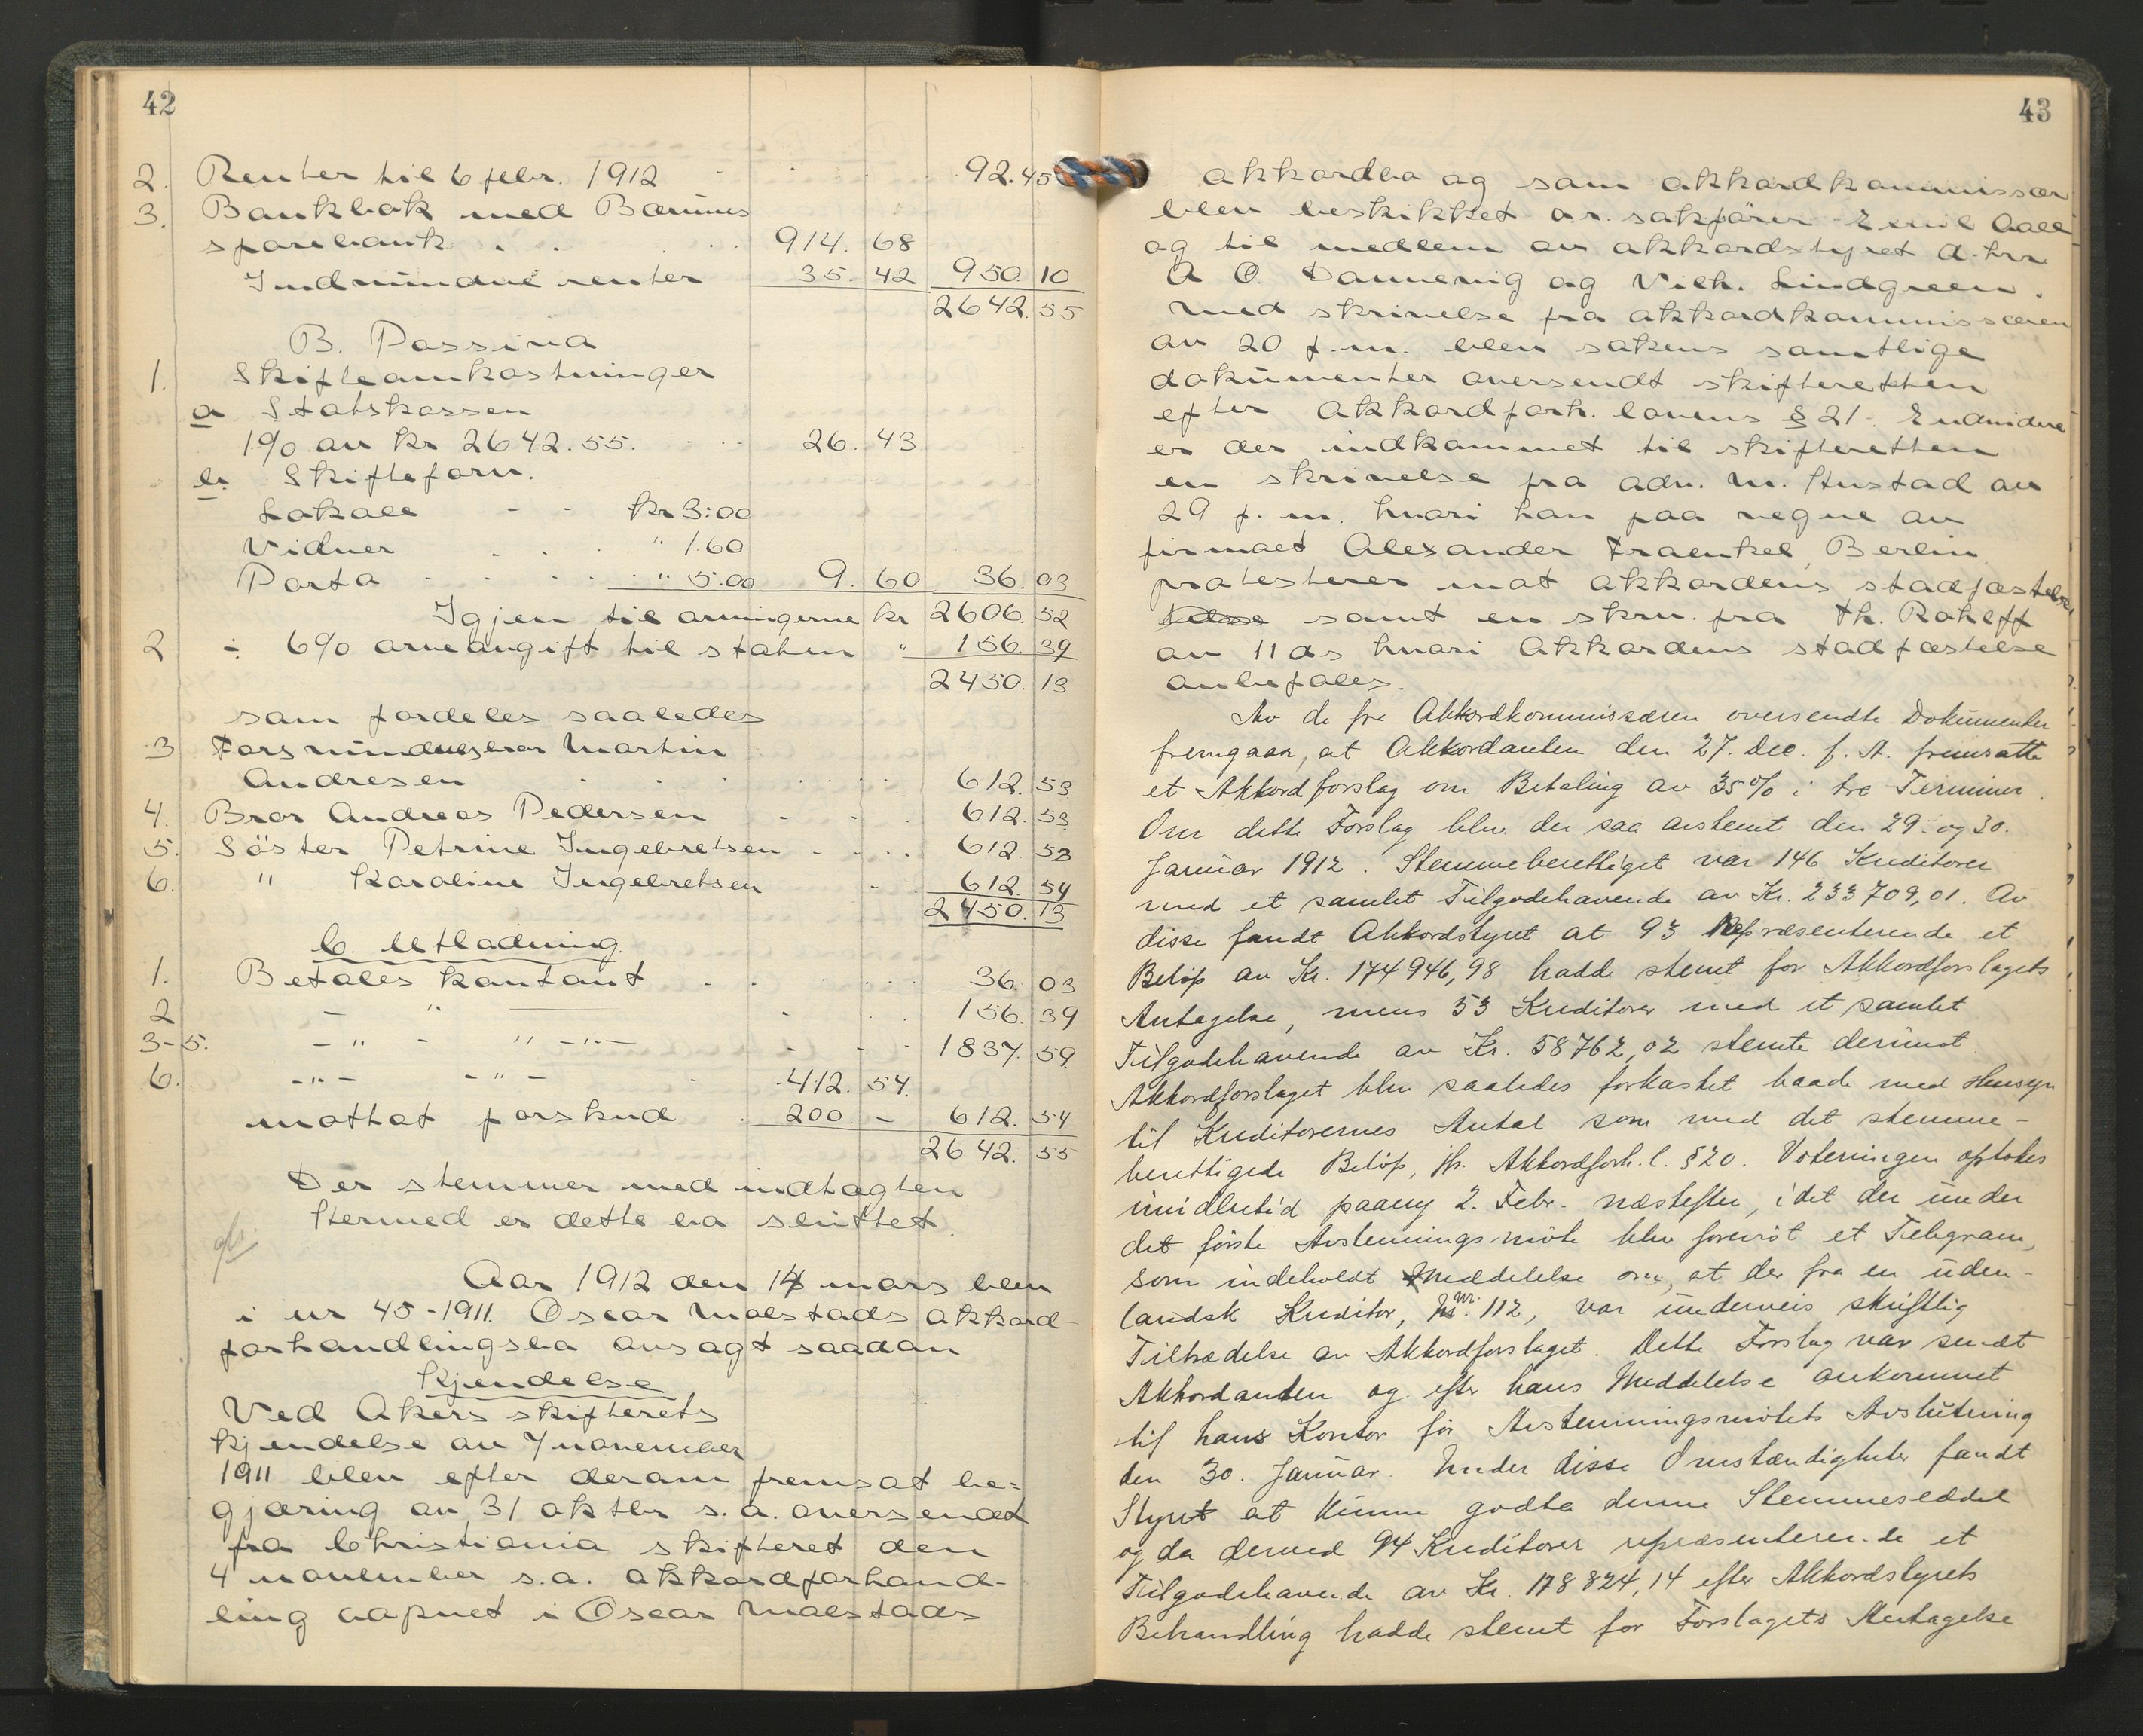 42
2. Renter til 6 febr. 1912 92.45
3. Bankbok med Bærums
sparebank . . 914. 68
Indvundne renter 35. 42 950. 10
2642. 55
B. Passiva
1. Skifteomkostninger
a Statskassen
1% av kr 2642.55. 26. 43
b. Skifteforv.
Lokale - - kr 3:00
Vidner . . . " 1.60
Porto . . . . " 5.00 9. 60 36. 03
Igjen til arvingerne kr 2606. 52
2 ÷ 6% arveavgift til staten " 156. 39
2450. 13
som fordeles saaledes
3 Forsvundne bror Martin
Andresen 612. 53
4. Bror Andreas Pedersen 612. 53
5. Söster Petrine Ingebretsen 612. 53
6. " Karoline Ingebretsen 612. 54
2450. 13
C. Utlodning.
1. Betales kontant 36. 03
2 - " 156. 39
3-5. - " - " - " - 1837. 59
6. - " - - " - 412. 54.
mottat forskud 200 - 612. 54
2642. 55
Der stemmer med indtægten
Hermed er dette bo sluttet.
Aar 1912 den 14 mars blev
i nr 45-1911. Oscar Molstads akkord-
forhandlingsbo avsagt saadan
Kjendelse
Ved Akers skifterets
kjendelse av 7 november
1911 blev efter derom fremsat be=
gjæring av 31 oktbr s.a. oversendt
fra Christiania skifteret den
4 november s.a. akkordforhand-
ling aapnet i Oscar Molstads
43
akkordbo og som akkordkommissær
blev beskikket o.r. sakförer Emil Aall
og til medlem av akkordstyret d.hrr.
A O. Dannevig og Vilh. Lindgreen.
Med skrivelse fra akkordkommissæren
av 20 f.m. blev sakens samtlige
dokumenter oversendt skifteretten
efter Akkordforh. lovens § 21. Endvidere
er der indkommet til skifteretten
en skrivelse fra adv. M. Hustad av
29 f.m. hvori han paa vegne av
firmaet Alexander Fraenkel, Berlin
protesterer mot akkordens stadfæstelse
samt en skriv. fra Th. Rohlff
av 11 ds hvori Akkordens stadfæstelse
anbefales.
Av de fra Akkordkommissæren oversendte Dokumenter
fremgaar, at Akkordanten den 27. Dec. f. A. fremsatte
et Akkordforslag om Betaling av 35% i tre Terminer.
Om dette Forslag blev der saa avstemt den 29. og 30.
Januar 1912. Stemmeberettiget var 146 Kreditorer
med et samlet Tilgodehavende av Kr. 233709,01. Av
disse fandt Akkordstyret at 93 Repræsenterende et
Belöp av Kr. 174946,98 hadde stemt for Akkordforslagets
Antagelse, mens 53 Kreditorer med et samlet
Tilgodehavende av Kr. 58762,02 stemte derimot.
Akkordforslaget blev saaledes forkastet baade med Hensyn
til Kreditorernes Antal som med det stemme-
berettigede Belöp, jfr. Akkordforh. l. § 20. Voteringen optokes
imidlertid paany 2. Febr. næstefter, idet der under
det förste Avstemningsmöte blev forevist et Telegram,
som indeholdt Meddelelse om, at der fra en uden-
landsk Kreditor, nr. 112, var underveis skriftlig
Tiltrædelse av Akkordforslaget. Dette Forslag var sendt
Akkordanten og efter hans Meddelelse ankommet
til hans Kontor för Avstemningsmötets Avslutning
den 30. Januar. Under disse Omstændigheter fandt
Styret at kunne godta denne Stemmeseddel
og da derved 94 Kreditorer repræsenterende et
Tilgodehavende av Kr. 178824,14 efter Akkordstyrets
Behandling hadde stemt for Forslagets Antagelse